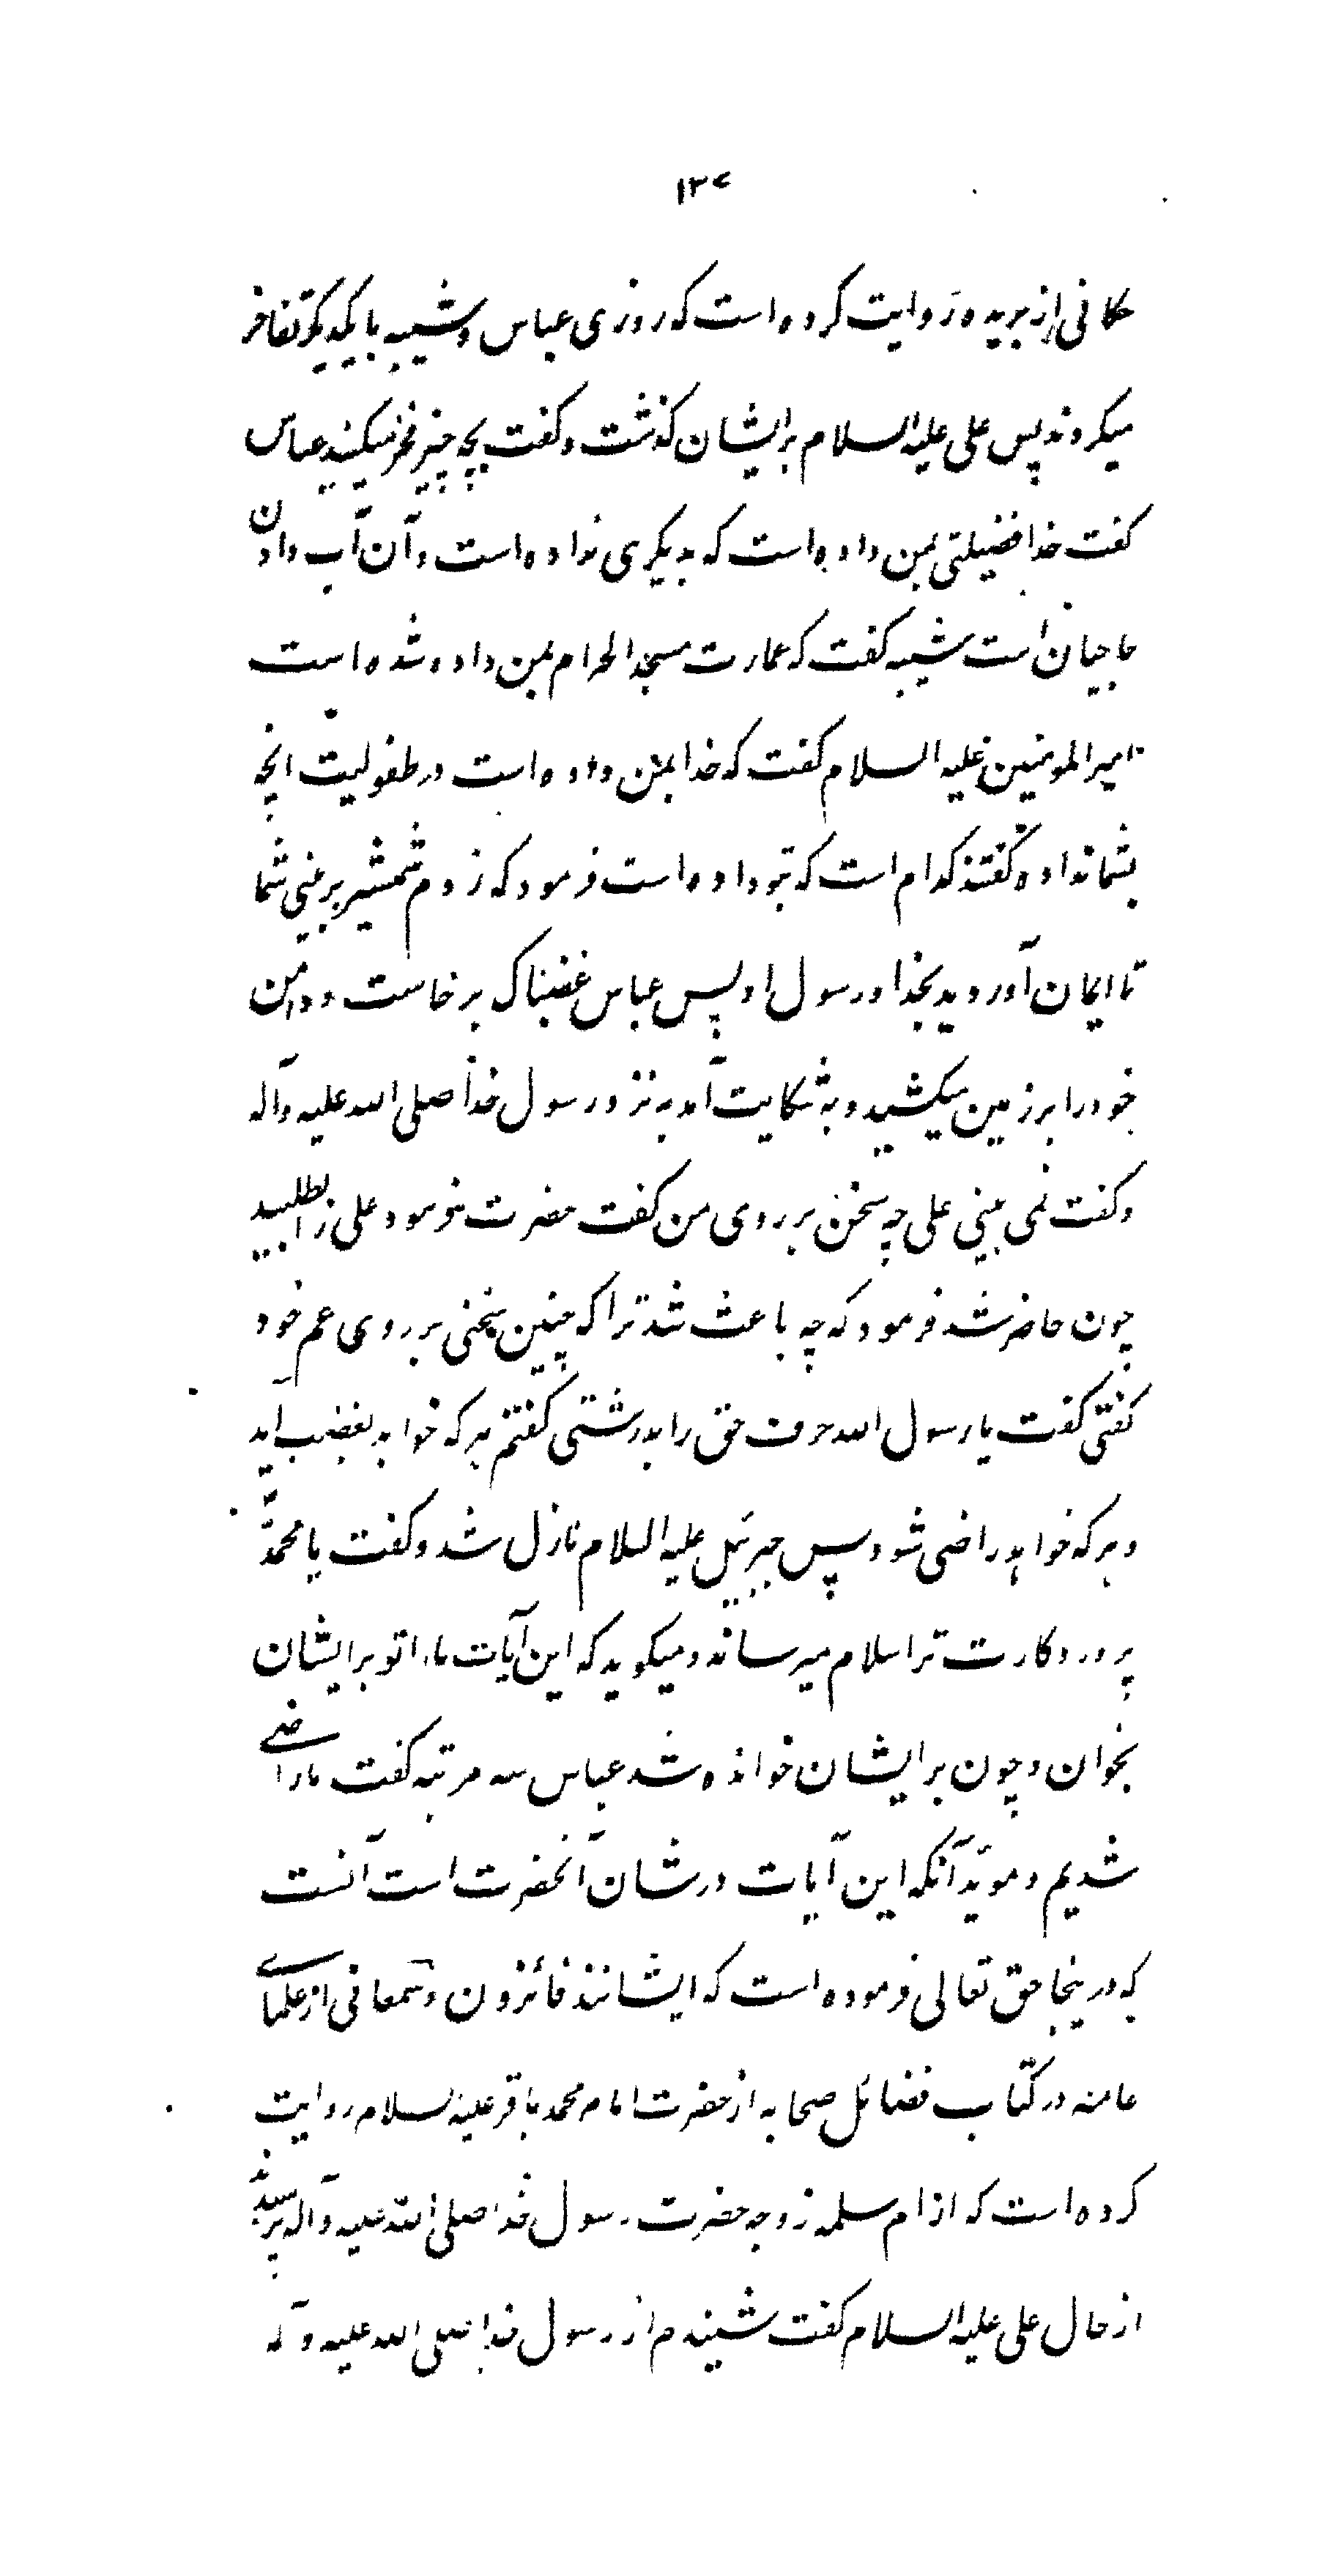 ۱۳۷
حکانی از بریده روایت کرده است که روزی عباس و شیبه بایکدیکر تفاخر
میکردند پس علی علیه السلام بر ایشان کذشت و کفت بچه چیز فخر میکنید عباس
کفت خدا فضیلتی بمن داده است که بدیکری نداده است و آن آب دادن
حاجیان است شیبه کفت که عمارت مسجد الحرام بمن داده شده است
امیر المومنین علیه السلام کفت که خدا بمن داده است در طفولیت انچه
بشما نداده کفتند کدام است که بتو داده است فرمود که زدم شمشیر بر بینی شما
تا ایمان آوردید بخدا و رسول او پس عباس غضبناک برخاست و دامن
خود را بر زمین میکشید و به شکایت آمد به نزد رسول خدا صلی الله علیه و آله
و کفت نمی بینی علی چه سخن بر روی من کفت حضرت فرمود علی را بطلبید
چون حاضر شد فرمود که چه باعث شد ترا که چنین سخنی بر روی عم خود
کفتی کفت یا رسول الله حرف حق را بدرشتی کفتم هر که خواهد بغضب آید
و هر که خواهد راضی شود پس جبرئیل علیه السلام نازل شد و کفت یا محمدؐ
پروردکارت ترا سلام میرساند و میکوید که این آیات ما را تو بر ایشان
بخوان و چون بر ایشان خوانده شد عباس سه مرتبه کفت ما راضے
شدیم و مویّد آنکه این آیات در شان آنحضرت است آنست
که در ینجا حق تعالی فرموده است که ایشانند فائزون و سمعانی از علمائے
عامه در کتاب فضائل صحابه از حضرت امام محمد باقر علیه السلام روایت
کرده است که از ام سلمه زوجه حضرت رسول خدا صلی الله علیه و آله پرسیدند
از حال علی علیه السلام کفت شنیدم از رسول خدا صلی الله علیه و آله